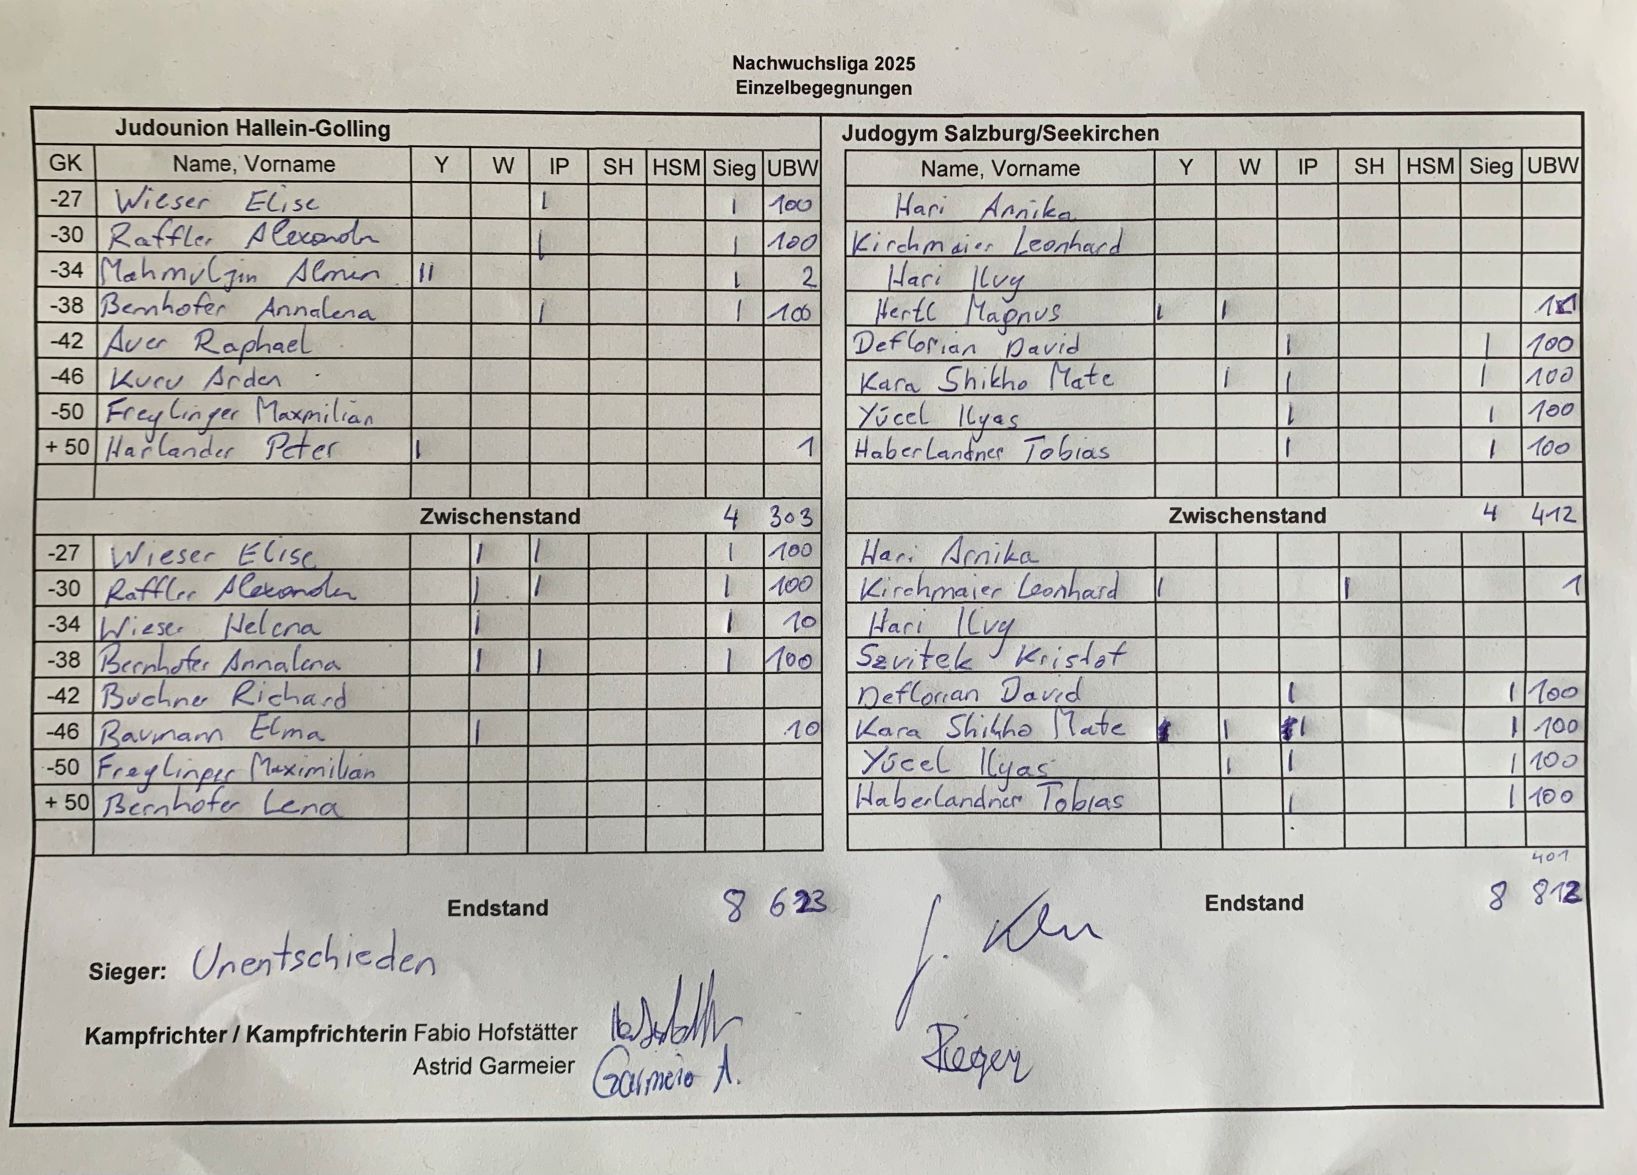 Nachwuchsliga 2025
Einzelbegegnungen
Judounion Hallein-Golling Judogym Salzburg/Seekirchen
GK Name, Vorname Y W IP SH HSM Sieg UBW Name, Vorname Y W IP SH HSM Sieg UBW
-27 Wieser Elise I I 100 Hari Annika
-30 Raffler Alexander I I 100 Kirchmaier Leonhard
-34 Mahmuljin Almin II I 2 Hari Ilvy
-38 Bernhofer Annalena I I 100 Hertl Magnus I I 11
-42 Auer Raphael Deflorian David I I 100
-46 Kuru Arden Kara Shikho Mate I I I 100
-50 Freylinger Maxmilian Yücel Ilyas I I 100
+ 50 Harlander Peter I 1 Haberlandner Tobias I I 100
Zwischenstand 4 303 Zwischenstand 4 412
-27 Wieser Elise I I I 100 Hari Annika
-30 Raffler Alexander I I I 100 Kirchmaier Leonhard I I 1
-34 Wieser Helena I I 10 Hari Ilvy
-38 Bernhofer Annalena I I I 100 Szvitek Kristof
-42 Buchner Richard Deflorian David I I 100
-46 Baumann Elma I 10 Kara Shikho Mate I I I 100
-50 Freylinger Maximilian Yücel Ilyas I I I 100
+ 50 Bernhofer Lena Haberlandner Tobias I I 100
401
Endstand 8 623 Endstand 8 813
Sieger: Unentschieden
Kampfrichter / Kampfrichterin Fabio Hofstätter
Astrid Garmeier Garmeier A. Rieger